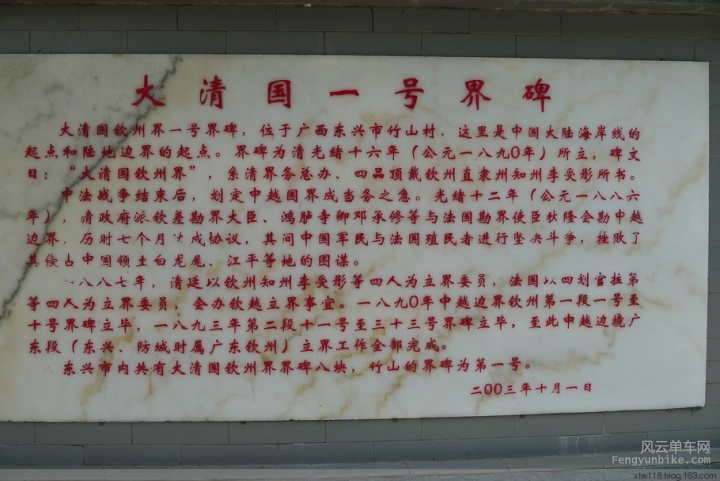 大清国一号界碑
大清国钦州界一号界碑，位于广西东兴市竹山村，这里是中国大陆海岸线的
起点和陆地边界的起点。界碑为清光绪十六年（公元一八九0年）所立，碑文
曰：“大清国钦州界”，系清界务总办、四品顶戴钦州直隶州知州李受彤所书。
中法战争结束后，划定中越国界成当务之急。光绪十二年（公元一八八六
年），清政府派钦差勘界大臣、鸿胪寺卿邓承修等与法国勘界使臣狄隆会勘中越
边界，历时七个月达成协议，其间中国军民与法国殖民者进行坚决斗争，挫败了
其侵占中国领土白龙尾、江平等地的图谋。
一八八七年，清廷以钦州知州李受彤等四人为立界委员，法国以四划官拉第
等四人为立界委员，会办钦越立界事宜。一八九0年中越边界钦州第一段一号至
十号界碑立毕，一八九三年第二段十一号至三十三号界碑立毕，至此中越边境广
东段（东兴、防城时属广东钦州）立界工作全部完成。
东兴市内共有大清国钦州界界碑八块，竹山的界碑为第一号。
二00三年十月一日
风云单车网
Fengyunbike.com
xtw118.blog.163.com